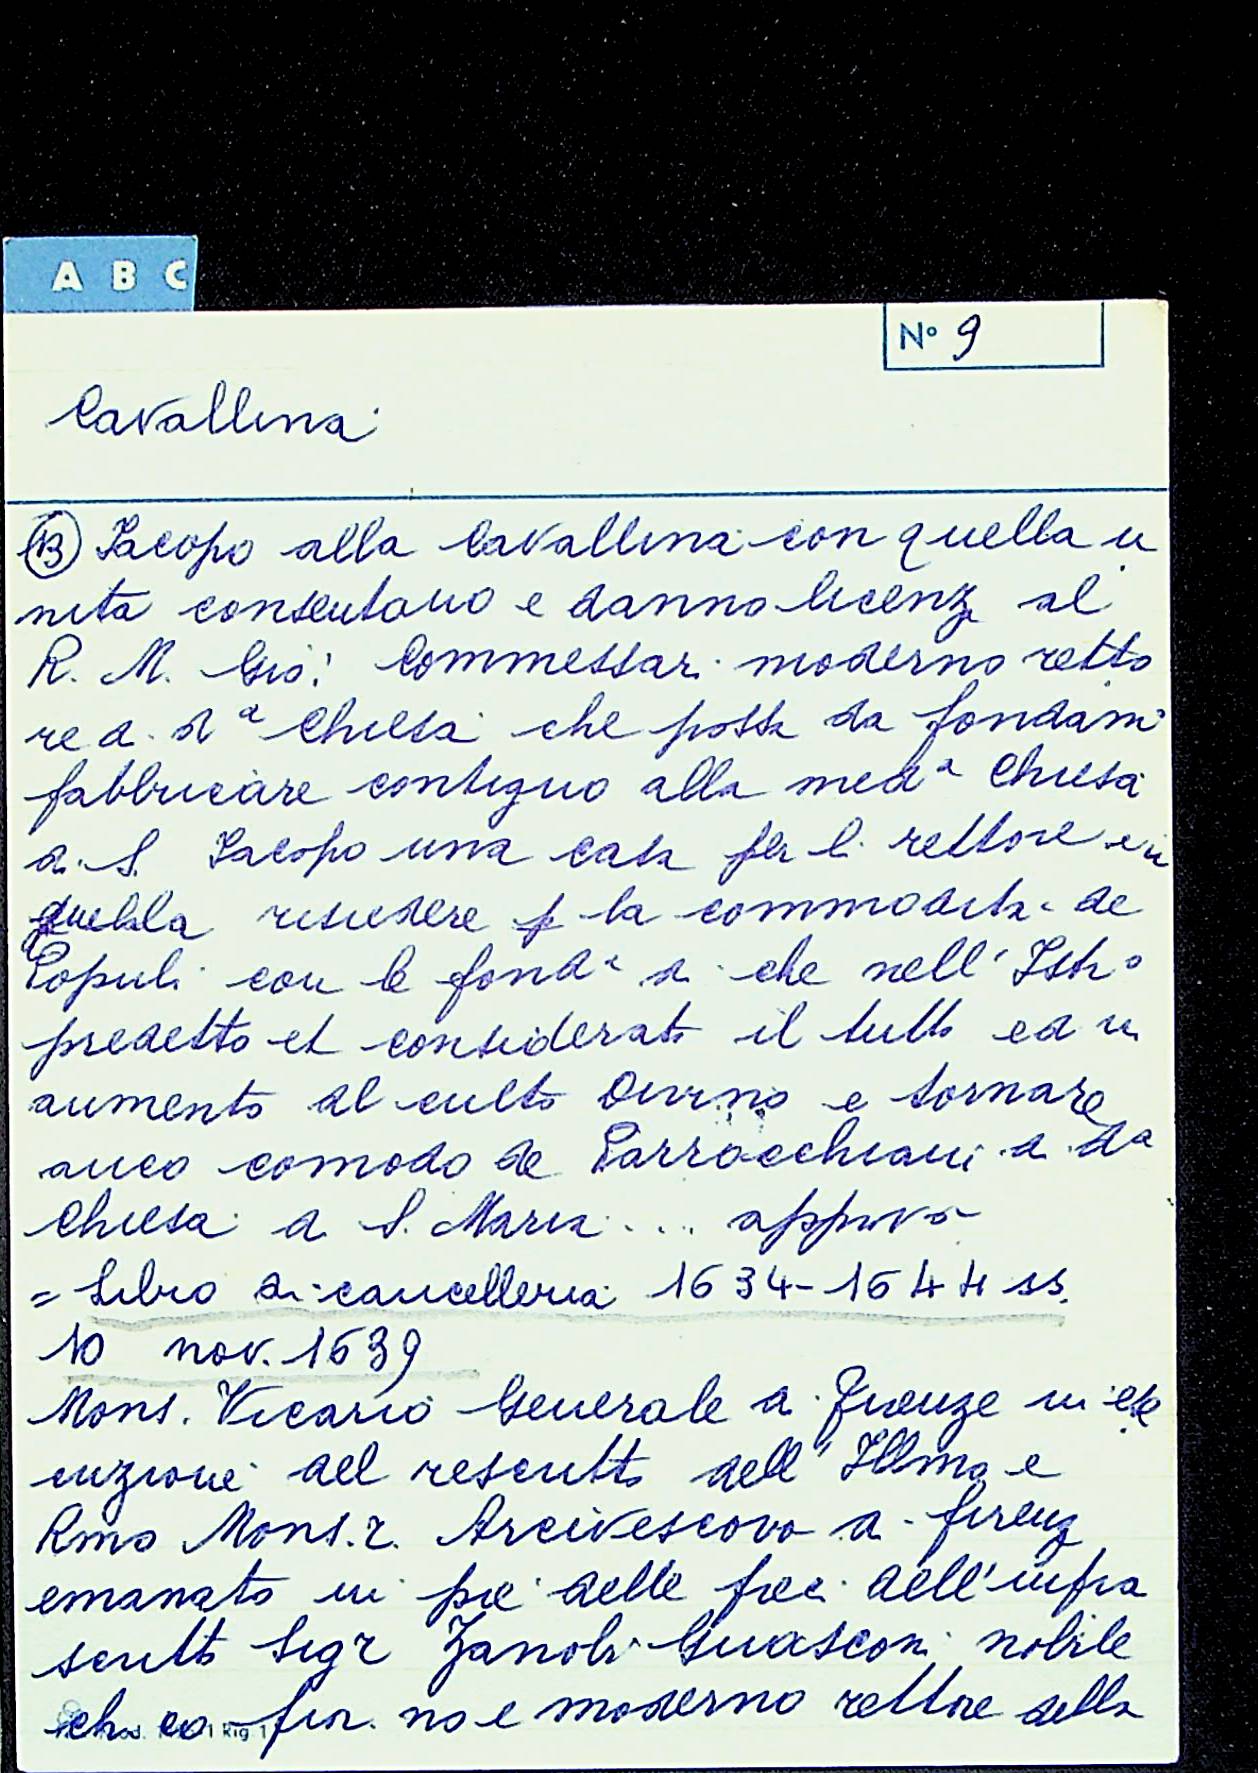 A B C
N° 9
Cavallina
(13) Iacopo alla Cavallina con quella u
nita consentano e danno licenz al
R. M. Gio: Commessari moderno retto
re d. dª Chiesa che possa da fondam
fabbricare contiguo alla medª Chiesa
d. S. Iacopo una casa per l. rettore e in
quella risiedere p la commodità de
Populi con le di che nell'
predetto et considerato il tutto ed in
aumento al culto Divino e tornare
anco comodo de Parrocchiani d. dª
Chiesa d S. Maria ... approvo
= Libro di cancelleria 1634-1644 ss.
10 nov. 1639
Mons. Vicario Generale d. Firenze in ese
cuzione del rescritto dell'Illmo e
Rmo Mons.r. Arcivescovo d. firenz
emanato in piè delle preci dell'infra
scritto Sigr Zanobi Guasconi nobile
ch co fior. no e moderno rettore della